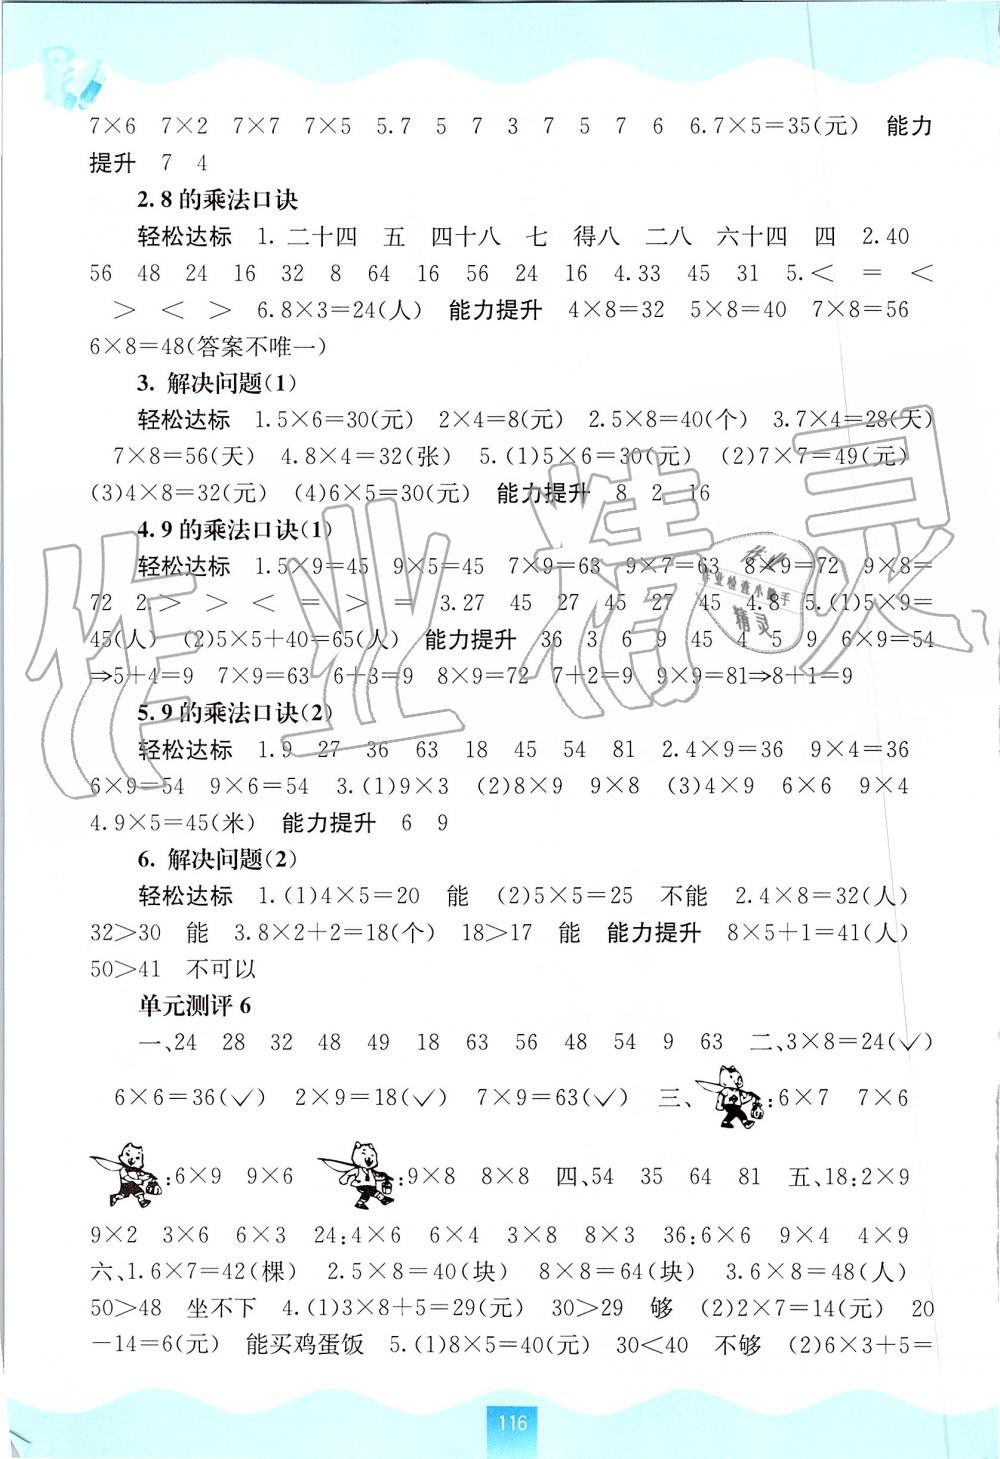 7×6 7×2 7×7 7×5 5.7 5 7 3 7 5 7 6 6.7×5=35(元) 能力
提升 7 4
2. 8的乘法口诀
轻松达标 1. 二十四 五 四十八 七 得八 二八 六十四 四 2.40
56 48 24 16 32 8 64 16 56 24 16 4.33 45 31 5.< = <
> < > 6.8×3=24(人) 能力提升 4×8=32 5×8=40 7×8=56
6×8=48(答案不唯一)
3. 解决问题(1)
轻松达标 1.5×6=30(元) 2×4=8(元) 2.5×8=40(个) 3.7×4=28(天)
7×8=56(天) 4.8×4=32(张) 5.(1)5×6=30(元) (2)7×7=49(元)
(3)4×8=32(元) (4)6×5=30(元) 能力提升 8 2 16
4. 9的乘法口诀(1)
轻松达标 1.5×9=45 9×5=45 7×9=63 9×7=63 8×9=72 9×8=
72 2.> > < = > = 3.27 45 27 45 27 45 4.8 5.(1)5×9=
45(人) (2)5×5+40=65(人) 能力提升 36 3 6 9 45 4 5 9 6×9=54
⇒5+4=9 7×9=63 6+3=9 8×9=72 7+2=9 9×9=81⇒8+1=9
5. 9的乘法口诀(2)
轻松达标 1.9 27 36 63 18 45 54 81 2.4×9=36 9×4=36
6×9=54 9×6=54 3.(1)9×3 (2)8×9 9×8 (3)4×9 6×6 9×4
4.9×5=45(米) 能力提升 6 9
6. 解决问题(2)
轻松达标 1.(1)4×5=20 能 (2)5×5=25 不能 2.4×8=32(人)
32>30 能 3.8×2+2=18(个) 18>17 能 能力提升 8×5+1=41(人)
50>41 不可以
单元测评6
一、24 28 32 48 49 18 63 56 48 54 9 63 二、3×8=24(✓)
6×6=36(✓) 2×9=18(✓) 7×9=63(✓) 三、:6×7 7×6
:6×9 9×6 :9×8 8×8 四、54 35 64 81 五、18:2×9
9×2 3×6 6×3 24:4×6 6×4 3×8 8×3 36:6×6 9×4 4×9
六、1.6×7=42(棵) 2.5×8=40(块) 8×8=64(块) 3.6×8=48(人)
50>48 坐不下 4.(1)3×8+5=29(元) 30>29 够 (2)2×7=14(元) 20
-14=6(元) 能买鸡蛋饭 5.(1)8×5=40(元) 30<40 不够 (2)6×3+5=
116
作业精灵
作业
作业检查小助手
精灵